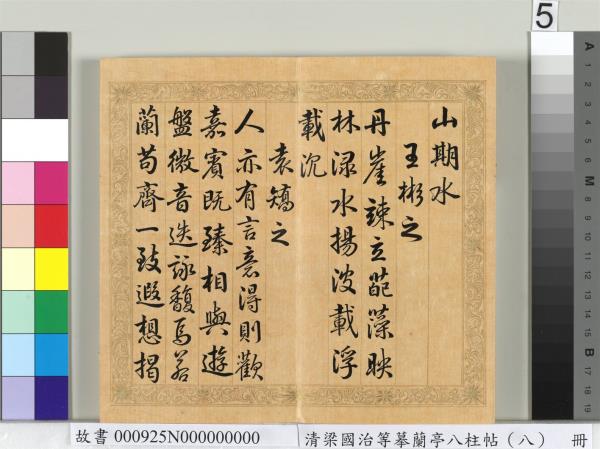 山期水
王彬之
丹崖竦立葩藻映
林渌水揚波載浮
載沉
袁嶠之
人亦有言意得則歡
嘉賓既臻相與遊
盤微音迭詠馥焉若
蘭苟齊一致遐想揭
5
故書 000925N000000000
清梁國治等摹蘭亭八柱帖（八） 冊
A
1
2
3
4
5
6
M
8
9
10
11
12
13
14
15
B
17
18
19